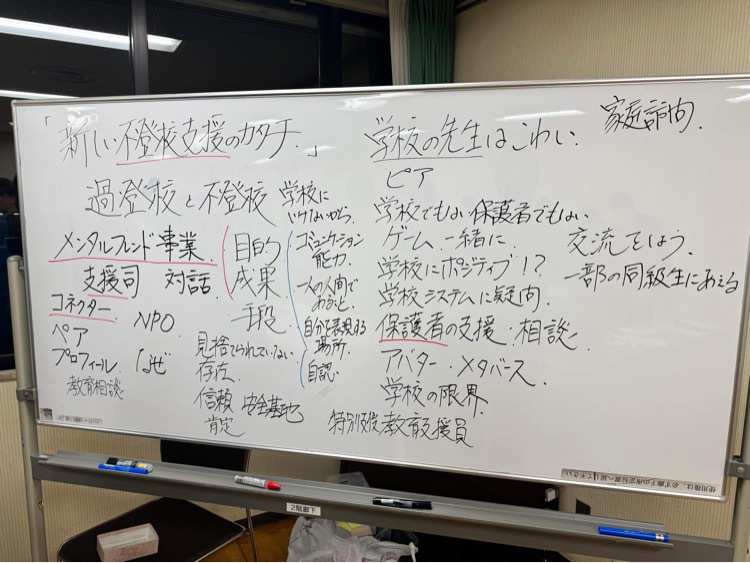 「新しい不登校支援のカタチ.」
過登校と不登校
学校に
いけないから.
メンタルフレンド事業
支援司 対話
目的
成果
手段
コミュニケーション
能力.
一人の人間で
あること.
自分を表現する
場所.
自認.
コネクター.
ペア
プロフィール
教育相談
NPO
なぜ
見捨てられていない
存在.
信頼 安全基地
肯定
家庭訪問.
学校の先生はこわい.
ピア
学校でもない保護者でもない
ゲーム 一緒に.
交流をしよう.
学校にポジティブ!?
一部の同級生にあえる
学校システムに疑問.
保護者の支援・相談
アバター・メタバース
学校の限界.
教育支援員
2階廊下
使用後は、必ず廊下の所定位置へ戻して下さい。